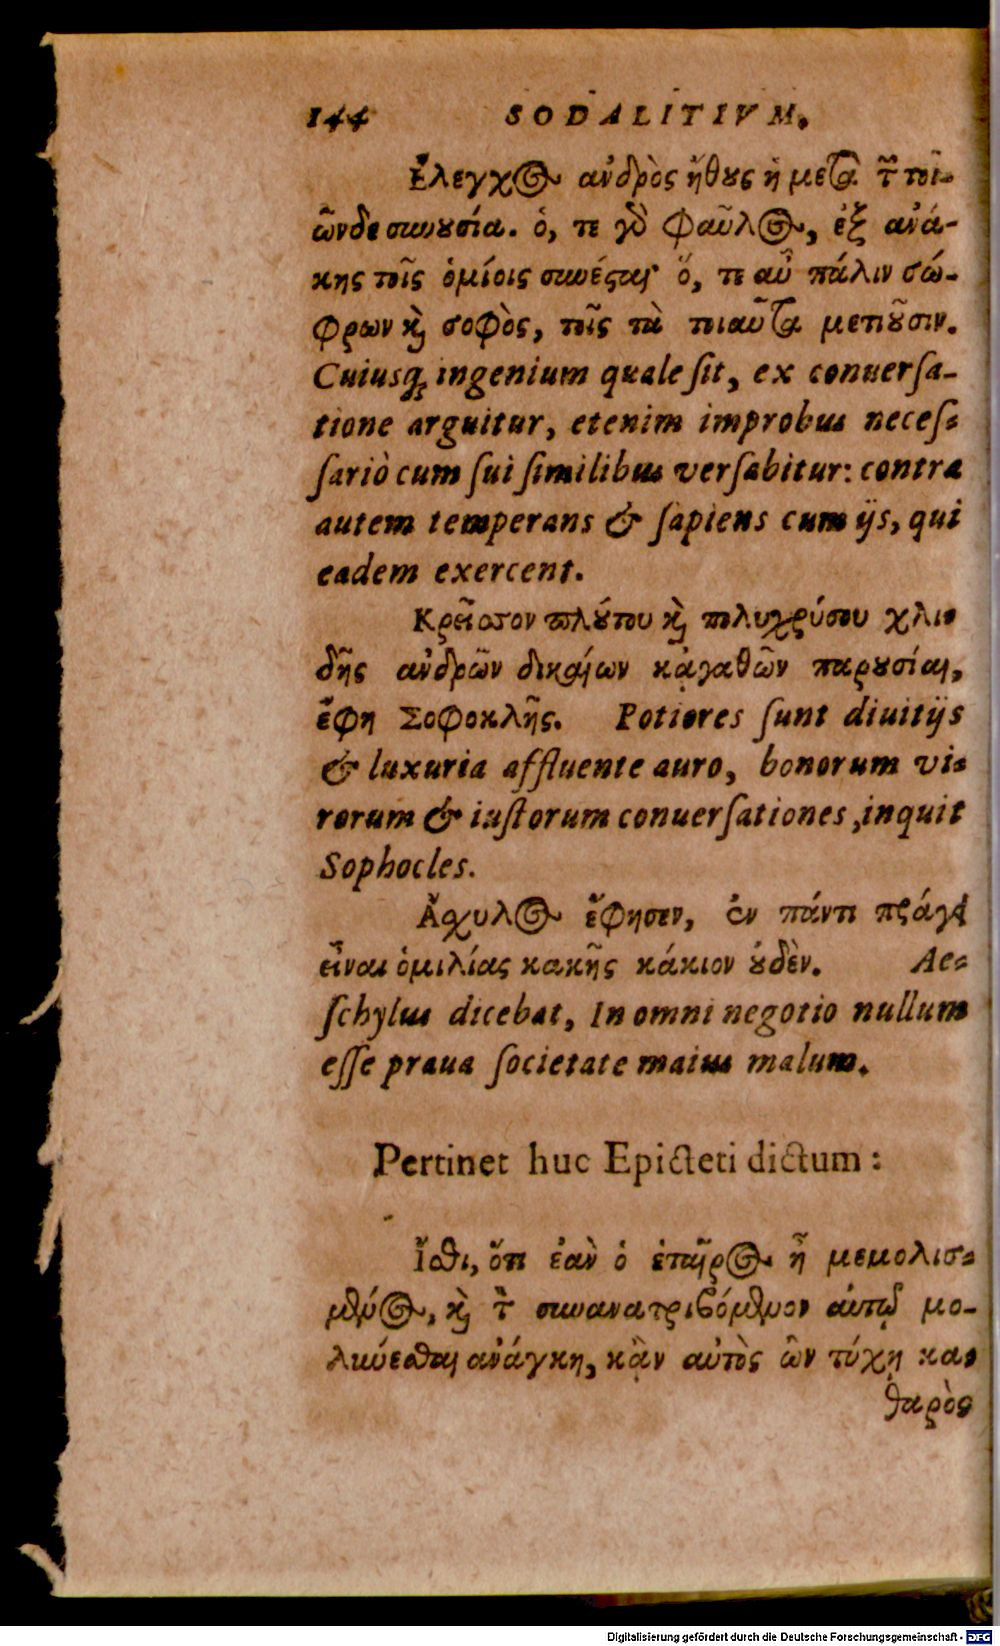 144 SODALITIVM.
Ἔλεγχος ἀνδρὸς ἤθους ἡ μετὰ τῶν τοι-
ῶνδε συνουσία. ὅ, τε γὰρ φαῦλος, ἐξ ἀνά-
κης τοῖς ὁμίοις συνέςαι· ὅ, τε αὖ πάλιν σώ-
φρων καὶ σοφὸς, τοῖς τὰ τοιαῦτα μετιοῦσιν.
Cuiusq; ingenium quale ſit, ex conuerſa-
tione arguitur, etenim improbus neceſ-
ſariò cum ſui ſimilibus verſabitur: contra
autem temperans & ſapiens cum ijs, qui
eadem exercent.
Κρεῖσσον πλούτου καὶ πολυχρύσου χλι-
δῆς ἀνδρῶν δικαίων κᾀγαθῶν παρουσίαι,
ἔφη Σοφοκλῆς. Potiores ſunt diuitijs
& luxuria affluente auro, bonorum vi-
rorum & iuſtorum conuerſationes, inquit
Sophocles.
Ἄσχυλος ἔφησεν, ἐν πάντι πράγ
εἶναι ὁμιλίας κακῆς κάκιον οὐδὲν. Ae-
ſchylus dicebat, In omni negotio nullum
eſſe praua ſocietate maius malum.
Pertinet huc Epicteti dictum:
Ἴσθι, ὅτι ἐὰν ὁ ἑταῖρος ᾖ μεμολισ-
μένος, καὶ τὸν συνανατριβόμενον αὐτῷ μο-
λκύεσθαι ἀνάγκη, κᾂν αὐτὸς ὢν τύχῃ κα-
θαρὸς
Digitalisierung gefördert durch die Deutsche Forschungsgemeinschaft - DFG